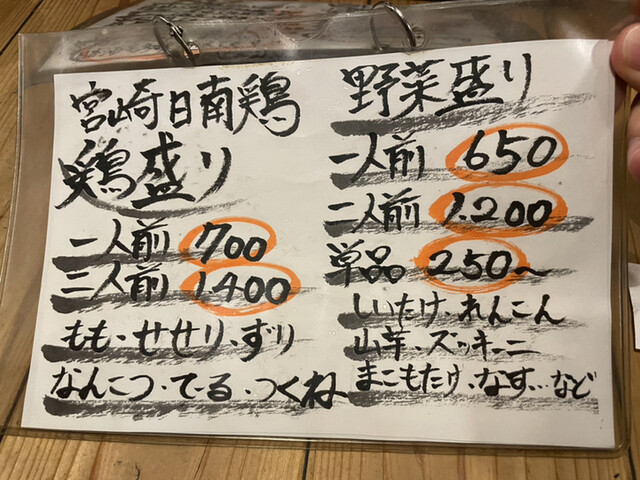 宮崎日南鶏
鶏盛り
一人前 700
二人前 1400
もも、せせり、ずり
なんこつ・てーる・つくね
野菜盛り
一人前 650
二人前 1.200
単品 250~
しいたけ、れんこん
山芋、ズッキーニ
まこもたけ、なす…など